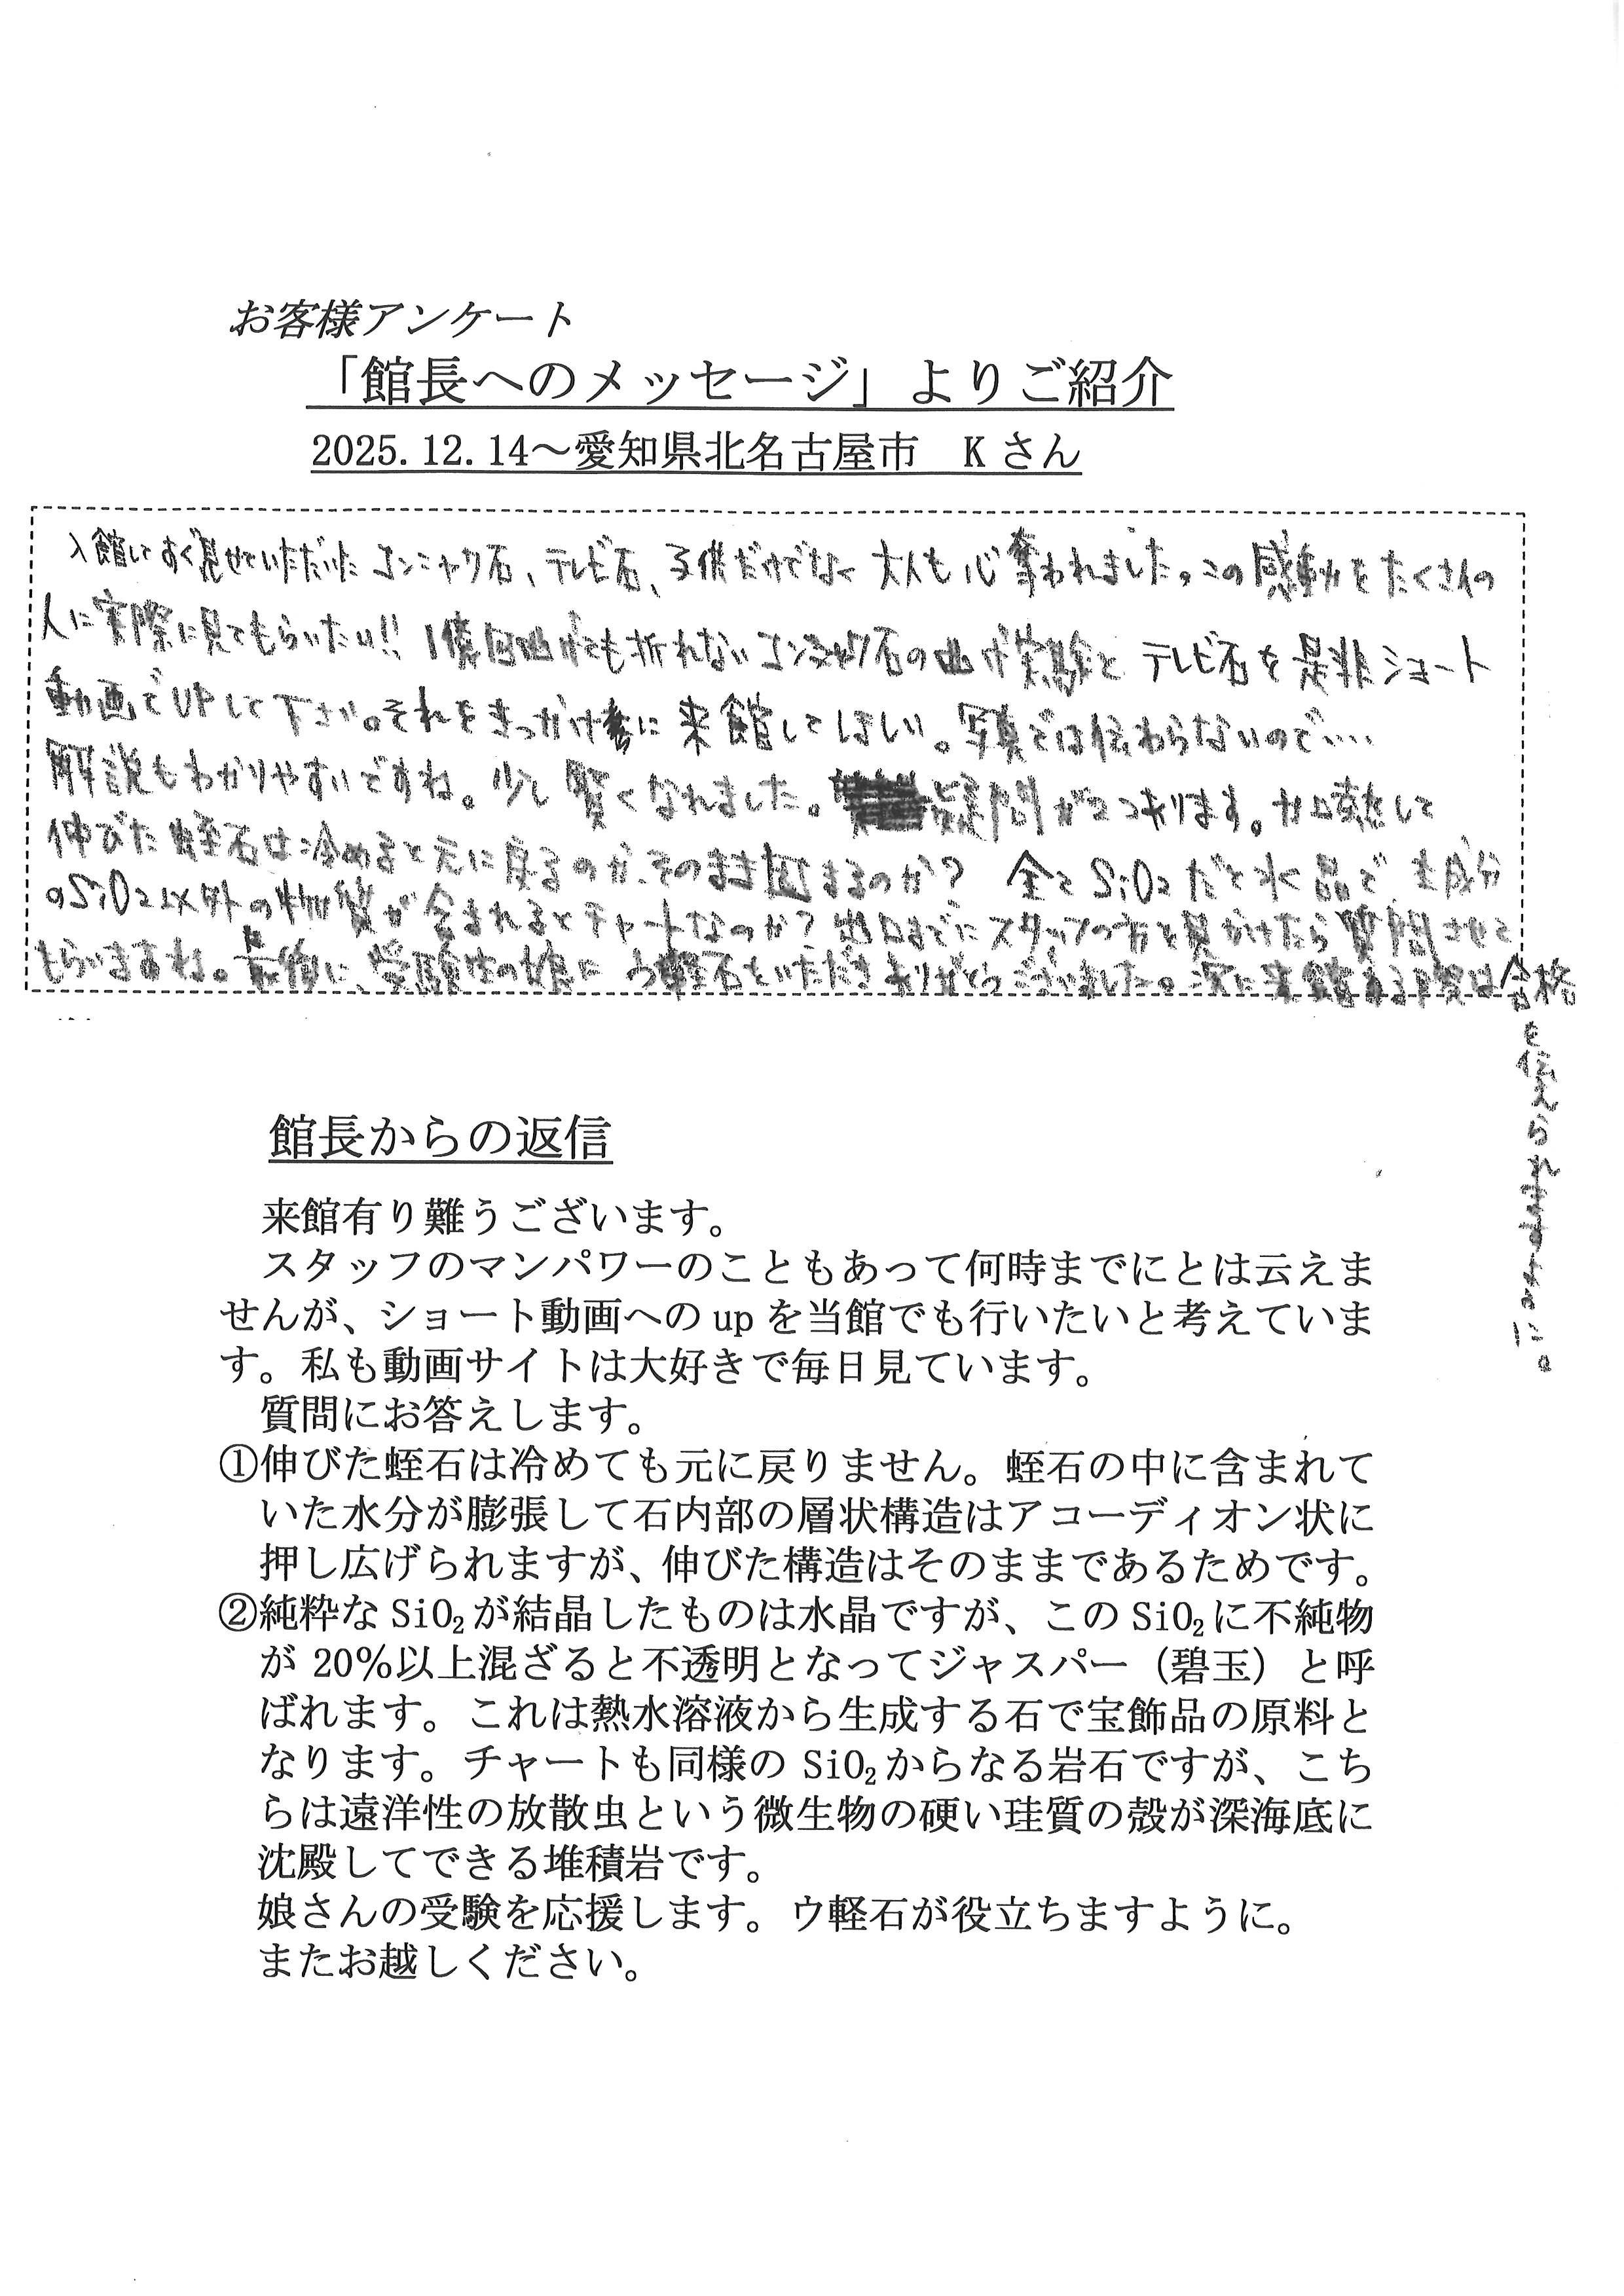 お客様アンケート
「館長へのメッセージ」よりご紹介
2025.12.14～愛知県北名古屋市　Kさん
入館してすぐ見せていただいたコンニャク石、テレビ石、子供だけでなく大人も心奪われました。この感動をたくさんの
人に実際に見てもらいたい!! 1億回曲げても折れないコンニャク石の曲げ実験とテレビ石を是非ショート
動画でUPして下さい。それをきっかけに来館してほしい。写真では伝わらないので…
解説もわかりやすいですね。少し賢くなれました。疑問が2つあります。加熱して
伸びた蛭石は冷めると元に戻るのか、そのまま固まるのか？ 全てSiO2だと水晶で、主成分
のSiO2以外の物質が含まれるとチャートなのか？出口までにスタッフの方を見かけたら質問させて
もらいますね。最後に、受験生の娘にウ軽石をいただきありがとうございました。次に来館する際は合格
を伝えられますように。
館長からの返信
来館有り難うございます。
スタッフのマンパワーのこともあって何時までにとは云えま
せんが、ショート動画へのupを当館でも行いたいと考えていま
す。私も動画サイトは大好きで毎日見ています。
質問にお答えします。
①伸びた蛭石は冷めても元に戻りません。蛭石の中に含まれて
いた水分が膨張して石内部の層状構造はアコーディオン状に
押し広げられますが、伸びた構造はそのままであるためです。
②純粋なSiO₂が結晶したものは水晶ですが、このSiO₂に不純物
が20%以上混ざると不透明となってジャスパー（碧玉）と呼
ばれます。これは熱水溶液から生成する石で宝飾品の原料と
なります。チャートも同様のSiO₂からなる岩石ですが、こち
らは遠洋性の放散虫という微生物の硬い珪質の殻が深海底に
沈殿してできる堆積岩です。
娘さんの受験を応援します。ウ軽石が役立ちますように。
またお越しください。